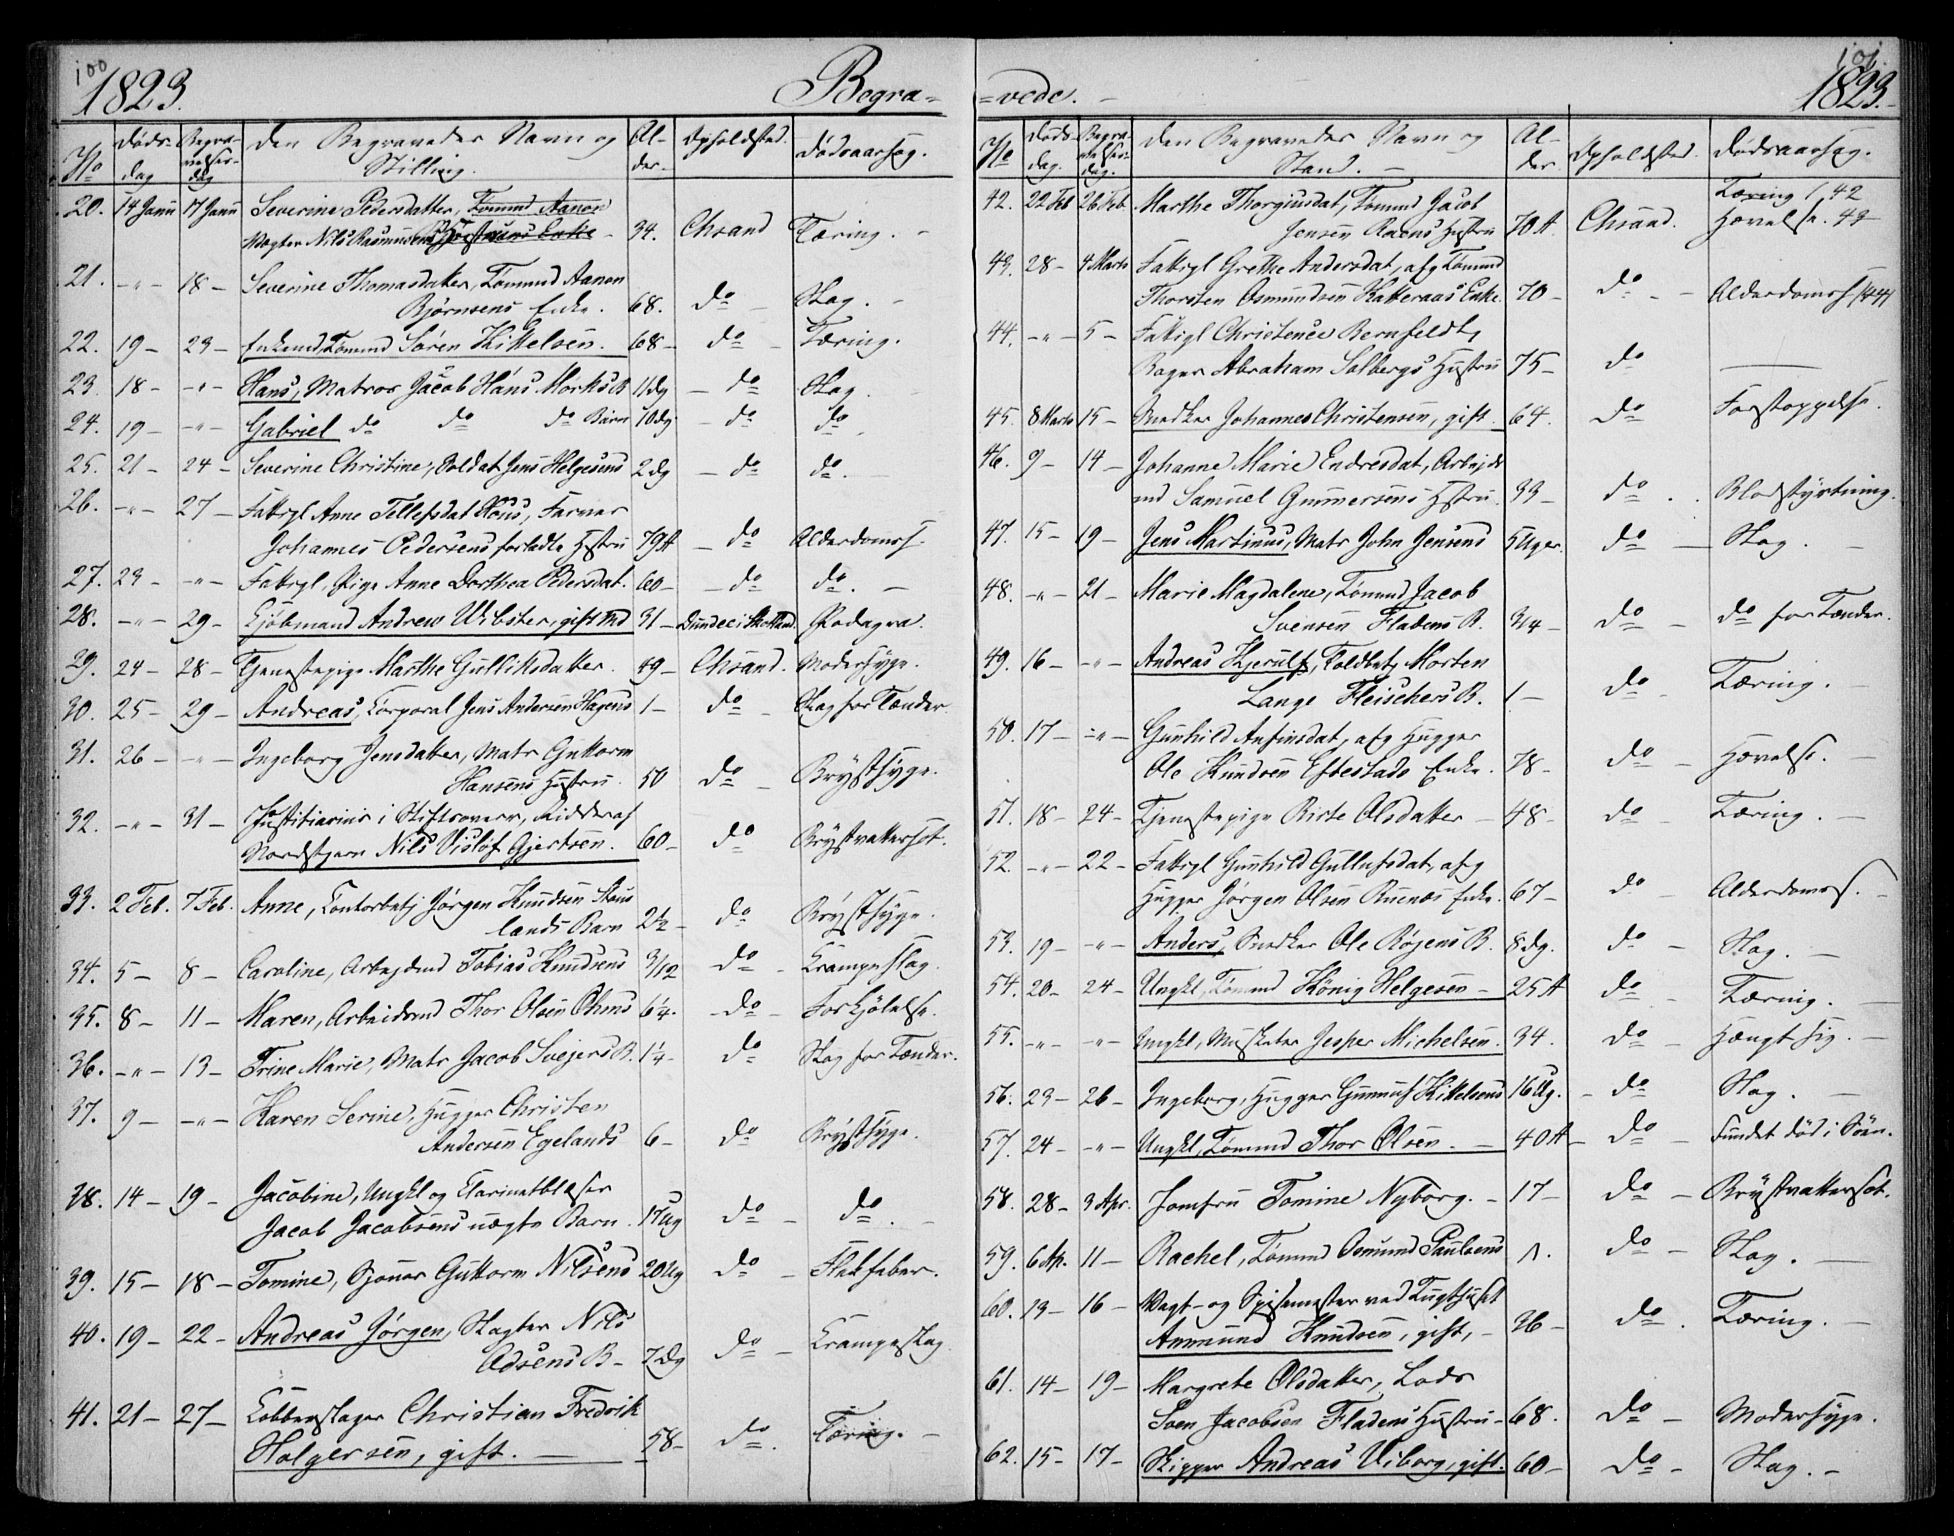 100
1823.
Begra=
No
Døds-
dag
Begra-
velses-
dag
Den Begravedes Navn og
Stilling.
Al-
der.
Opholdsted.
Dødsaarsag.
20. 14 Janu 17 Janu Severine Pedersdatter, Tømmd Aanon
Vægter Nils Rasmussens 34. Chsand Tæring. -
21. -"- 18- Severine Thomasdatter, Tømmd Aanon
Bjørnsens Enke. 68. do Slag. -
22. 19- 23- Enkemd, Tømmd Søren Kittelsen. 68- do - Tæring.
23. 18- -"- Hans, Matros Jacob Hans. Mørks B 11 dg - do Slag
24. 19- -"- Gabriel do do do Barn 10 dg - do do
25. 21- 24- Severine Christine, Soldat Jens Helgesens 2 dg - do do. -
26. -"- 27- Fattigl Anne Tellefsdat Høus, Farver
Johannes Pedersens forladte Hstru 79 A - do Alderdomss.
27. 23- -"- Fattigl. Pige Anne Dorthea Pedersdat. 60- - do do. -
28. -"- 29- Kjöbmand Andrew Webster, gift Md 31- Dundee i Skotland. Podagra.
29. 24- 28- Tjenestepige Marthe Gulliksdatter. 49- Chsand. Modersyge.
30. 25- 29- Andreas, Corporal Jens Andersen Hagens 1- do - Slag for Tænder
31. 26- -"- Ingeborg Jensdatter, Matr Guttorm
Hansens Hustru. 50 do - Brystsyge.
32. -"- 31- Justitiarius i Stiftsoverr, Ridder af
Nordstjern Nils Vislöf Gjertsen. 60- do Brystvattersot.
33. 2 Feb. 7 Feb. Anne, Contorbetj Jørgen Knudsen Staus
lands Barn 2½- do Brystsyge.
34. 5- 8- Caroline, Arbejdsmd Tobias Knudsens 3/12 do - Krampeslag.
35. 8- 11- Maren, Arbeidsmd Thor Olsen Ohms 6¼. - do - Forkjölelse.
36. -"- 13- Trine Marie, Matr Jacob Svejers B. 1¼- do Slag for Tænder.
37. 9- -"- Karen Serine, Hugger Christen
Andersen Egelands 6- do Brystsyge.
38. 14- 19- Jacobine, Ungkl og Clarinetblæser
Jacob Jacobsens uægte Barn. 17 Ug do - do. -
39. 15- 18- Tomine, Sjouer Guttorm Nilsens 20 Ug do - Flekfeber.
40. 19- 22- Andreas Jørgen, Slagter Nils
Adsens B- 7 dg do - Krampeslag
41. 21- 27- Cobberslager Christian Fredrik
Holgersen, gift. - 58- do. Tæring. -
101.
1823.
=vede. -
No
Døds-
dag.
Begra-
velses-
dag.
Den Begravedes Navn og
Stand. -
Al-
der
Opholdsted.
Dødsaarsag.
42. 22 Feb 26 Feb Marthe Thorgiusdat, Tømmd Jacob
Jensen Raens Hustru 70 A Chsand. Tæring / 42
Hævelse. 43
43. 28- 4 Marts Fattigl Grethe Andersdat, afg Tømmd
Thorsten Osmundsen Katteraas Enke. 70- do - - Alderdomss /44/
44. -"- 5- Fattigl Christence Bernfeldt,
Bager Abraham Solbergs Hustru 75- do
45. 8 Marts 15- Snedker Johannes Christensen, gift. 64. do Forstoppelse.
46. 9- 14- Johanne Marie Endresdat, Arbejds
md Samuel Gunnersens Hstru. 33- do . . Blodstyrtning.
47. 15- 19- Jens Martinus, Matr John Jensens 5 Uger. do - Slag. -
48. -"- 21- Marie Magdalene, Tømmd Jacob
Svensen Fladens B. 3/4- do - do for Tænder.
49. 16- -"- Andreas Kjerulf, Toldbetj Morten
Lange Fleischers B. 1- do - Tæring. -
50. 17- -"- Gunhild Anfinsdat, afg Hugger
Ole Knudsen Eftestads Enke. 78- do - Hævelse. -
51. 18- 24- Tjenestepige Birte Olsdatter - 48- do - Tæring. -
52. -"- 22- Fattigl Gunhild Gullufsdat, afg
Hugger Jørgen Olsen Ruenæs Enke. 67- do Alderdomss. -
53. 19- -"- Anders, Snedker Ole Røjens B. 8 dg. do - Slag. -
54. 20- 24- Ungkl, Tømmd König Helgesen - 25 A do - Tæring. -
55. -"- -"- Ungkl, Musketer Jesper Michelsen. 34. do - Hængt sig. -
56. 23- 26- Ingeborg, Hugger Gunnuf Kittelsens 16 Ug. - do Slag. -
57. 24- -"- Ungkl, Tømmd Thor Olsen. - 40 A- do - Fundet død i Söen.
58. 28- 3 Apr. Jomfru Tomine Nyborg. - 17- do - Brystvattersot.
59. 6 Ap. 11- Rachel, Tømmd Osmund Paulsens 1. do - Slag. -
60. 13- 16- Vagt- og Spisemester ved Tugthuset
Anmund Knudsen, gift, - 36- do . Tæring. -
61. 14- 19- Margrete Olsdatter, Lods
Sven Jacobsen Fladens Hustru - 68. do - Modersyge.
62. 15- 17- Skipper Andreas Viborg, gift. 60- do - Slag. -